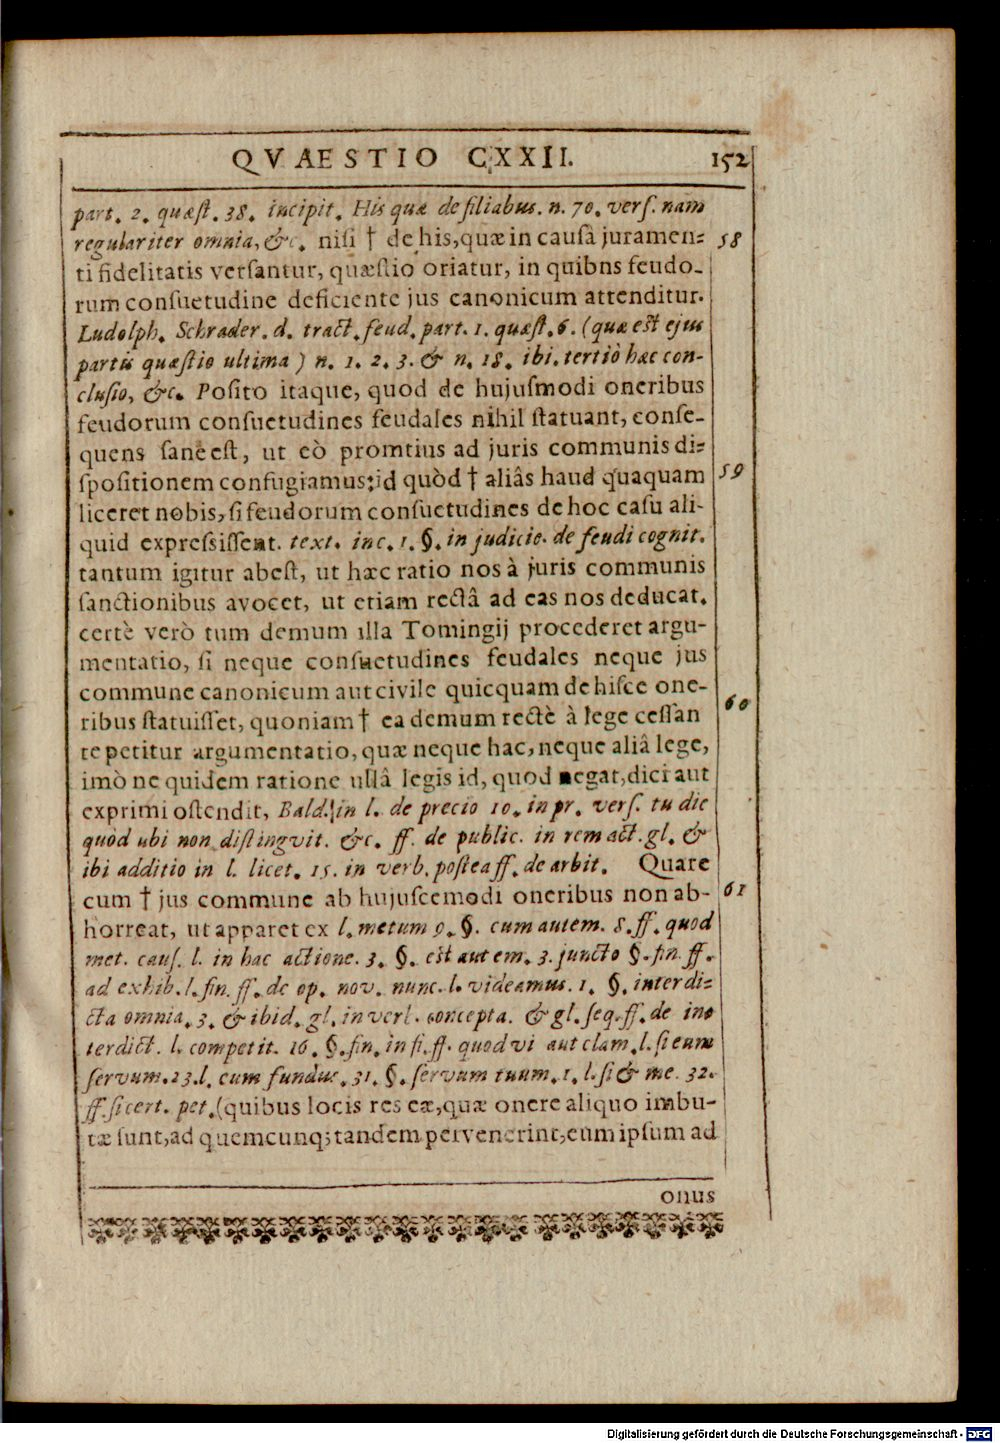 QVAESTIO CXXII. 152
part. 2. quæſt. 38. incipit. His quæ de filiabus. n. 70. verſ. nam
regulariter omnia, &c. niſi † de his, quæ in causâ juramen- 58
ti fidelitatis verſantur, quæſtio oriatur, in quibns feudo-
rum conſuetudine deficiente jus canonicum attenditur.
Ludolph. Schrader. d. tract. feud. part. 1. quæſt. 6. (quæ est ejus
partis quæſtio ultima) n. 1. 2. 3. & n. 18. ibi. tertiò hæc con-
cluſio, &c. Poſito itaque, quod de hujuſmodi oneribus
feudorum conſuetudines feudales nihil ſtatuant, conſe-
quens ſanè eſt, ut eò promtius ad juris communis di-
ſpoſitionem confugiamus: id quòd † aliâs haud quaquam 59
liceret nobis, ſi feudorum conſuetudines de hoc caſu ali-
quid expreſsiſſent. text. in c. 1. §. in judicio. de feudi cognit.
tantum igitur abeſt, ut hæc ratio nos à juris communis
ſanctionibus avocet, ut etiam rectâ ad eas nos deducat.
certè verò tum demum illa Tomingij procederet argu-
mentatio, ſi neque conſuetudines feudales neque jus
commune canonicum aut civile quicquam de hiſce one-
ribus ſtatuiſſet, quoniam † ea demum rectè à lege ceſſan 60
te petitur argumentatio, quæ neque hac, neque aliâ lege,
imò ne quidem ratione ullâ legis id, quod negat, dici aut
exprimi oſtendit, Bald. in l. de precio 10. in pr. verſ. tu dic
quòd ubi non diſtingvit. &c. ff. de public. in rem act. gl. &
ibi additio in l. licet. 15. in verb. poſtea ff. de arbit. Quare
cum † jus commune ab hujuſcemodi oneribus non ab- 61
horreat, ut apparet ex l. metum 9. §. cum autem. 8. ff. quod
met. cauſ. l. in hac actione. 3. §. est autem. 3. juncto §. fin. ff.
ad exhib. l. fin. ff. de op. nov. nunc. l. videamus. 1. §. interdi-
cta omnia. 3. & ibid. gl. in verb. concepta. & gl. ſeq. ff. de ino
terdict. l. competit. 16. §. fin. in fi. ff. quod vi aut clam. l. ſi eum
ſervum. 23. l. cum fundus. 31. §. ſervum tuum. 1. l. ſi & me. 32.
ff. ſi cert. pet. (quibus locis res eæ, quæ onere aliquo imbu-
tæ ſunt, ad quemcunq; tandem pervenerint, eum ipſum ad
onus
Digitalisierung gefördert durch die Deutsche Forschungsgemeinschaft - DFG